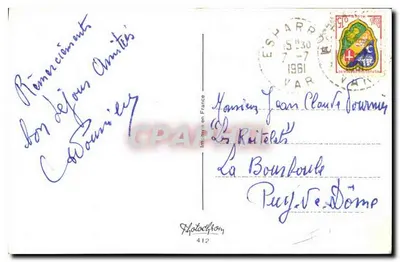 Remerciements
bon séjour Amitiés
ESPARRON
15H30
7
1961
VAR
0,15
Monsieur Jean Claude Fournier
Les Roitelets
La Bourboule
Puy-de-Dôme
Imprimé en France
CPARAMA
Photochrom
412